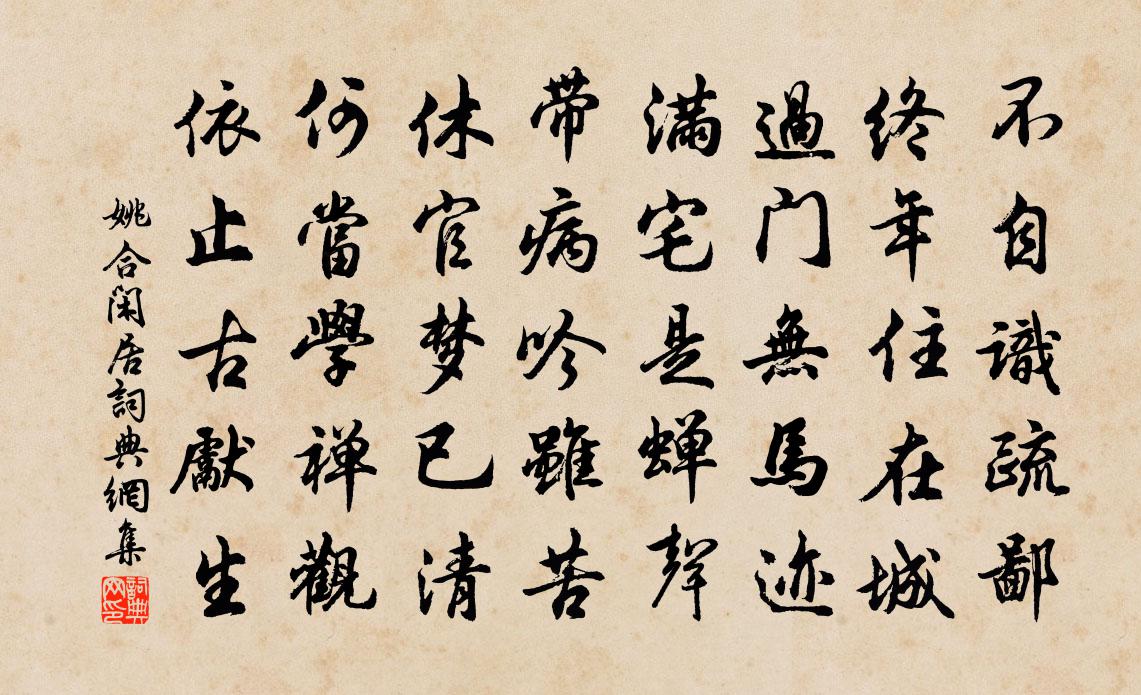 不自識疏鄙
終年住在城
過门無馬迹
滿宅是蝉聲
帶病吟雖苦
休官梦已清
何當學禅觀
依止古獻生
姚合閑居詞典網集
詞典网印